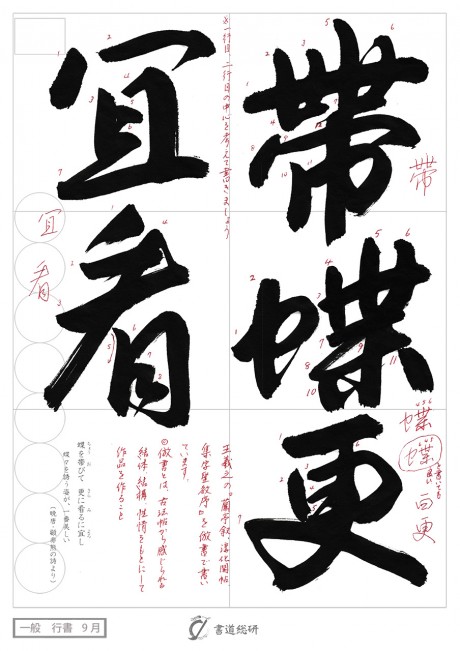 帶蝶更
宜看
※一行目、二行目の中心を考えて書きましょう
帶
蝶
蝶
と書いても良い
更
宜
看
王羲之の「蘭亭叙、淳化閣帖
集字聖教序」を倣書で書い
ています。
◎倣書とは、古法帖から感じられる
結体、結構、性情をもとにして
作品を作ること
蝶を帯びて 更に看るに宜し
姿が、一番美しい
(晩唐・顧非熊の詩より)
一般 行書 9月
書道総研